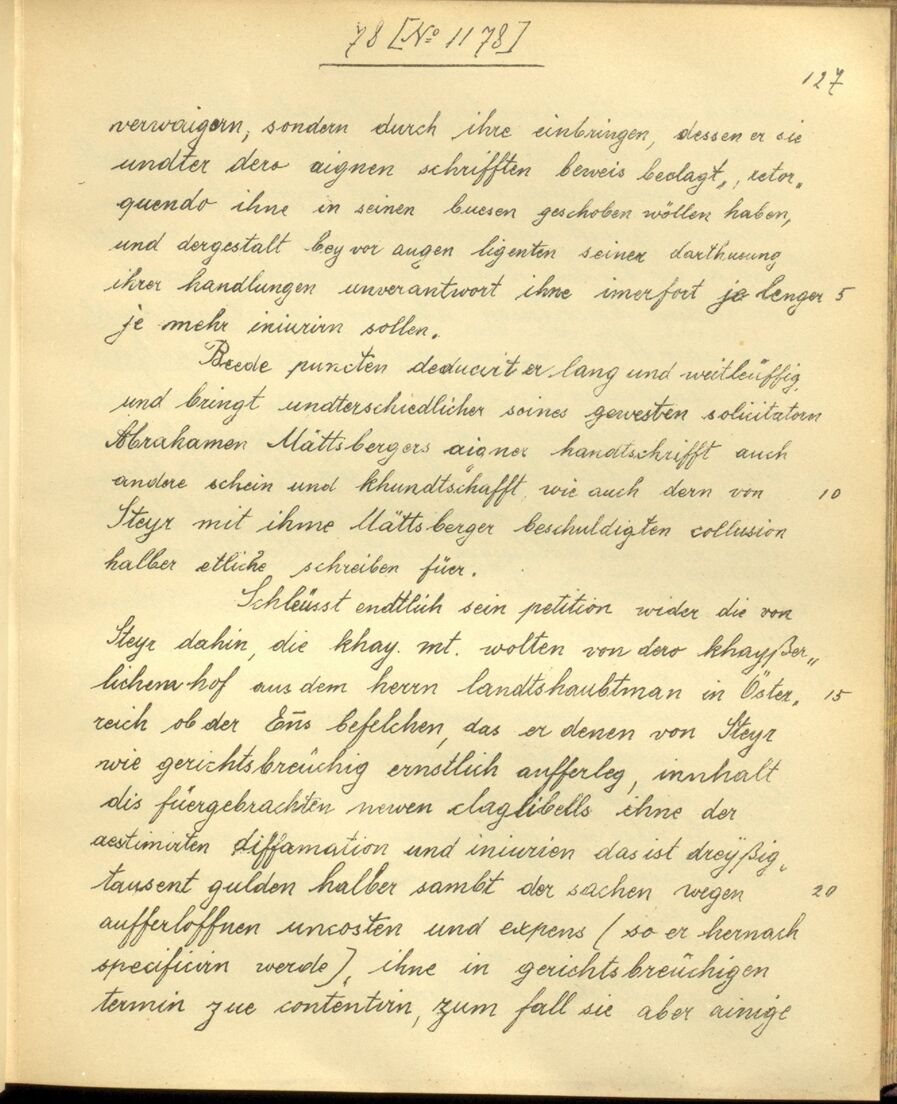 78 [No 1178]
127
verwaigern, sondern durch ihre einbringen, dessen er sie
undter dero aignen schrifften beweis beclagt„, retor„
quendo ihne in seinen buesen geschoben wöllen haben,
und dergestalt bey vor augen ligenten seiner darthueung
ihrer handlungen unverantwort ihne imerfort je lenger 5
je mehr iniurirn sollen.
Beede puncten deducirt er lang und weitleüffig,
und bringt undterschiedlicher seines gewesten solicitatorn
Abrahamen Mättsbergers aigner handtschrifft auch
andere schein und khundtschafft, wie auch dern von 10
Steyr mit ihme Mättsberger beschuldigten collusion
halber etliche schreiben füer.
Schleüsst endtlich sein petition wider die von
Steyr dahin, die khay. mt. wolten von dero khayßer„
lichem hof aus dem herrn landtshaubtman in Öster„ 15
reich ob der Enns befelchen, das er denen von Steyr
wie gerichtsbreüchig ernstlich aufferleg, innhalt
dis füergebrachten newen claglibells ihne der
aestimirten diffamation und iniurien das ist dreyßig„
tausent gulden halber sambt der sachen wegen 20
aufferloffnen uncosten und expens (so er hernach
specificirn werde), ihne in gerichtsbreüchigen
termin zue contentirn, zum fall sie aber ainige